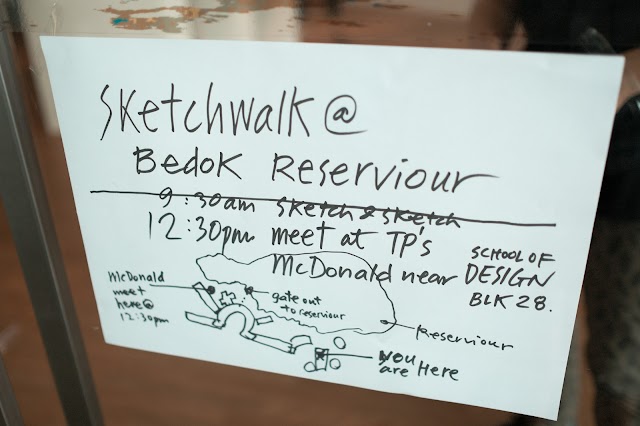 Sketchwalk @
Bedok Reserviour
9:30am sketch & sketch
12:30pm meet at TP's
McDonald near
SCHOOL OF
DESIGN
BLK 28.
McDonald
meet
here @
12:30pm
gate out
to reserviour
Reserviour
You
are Here